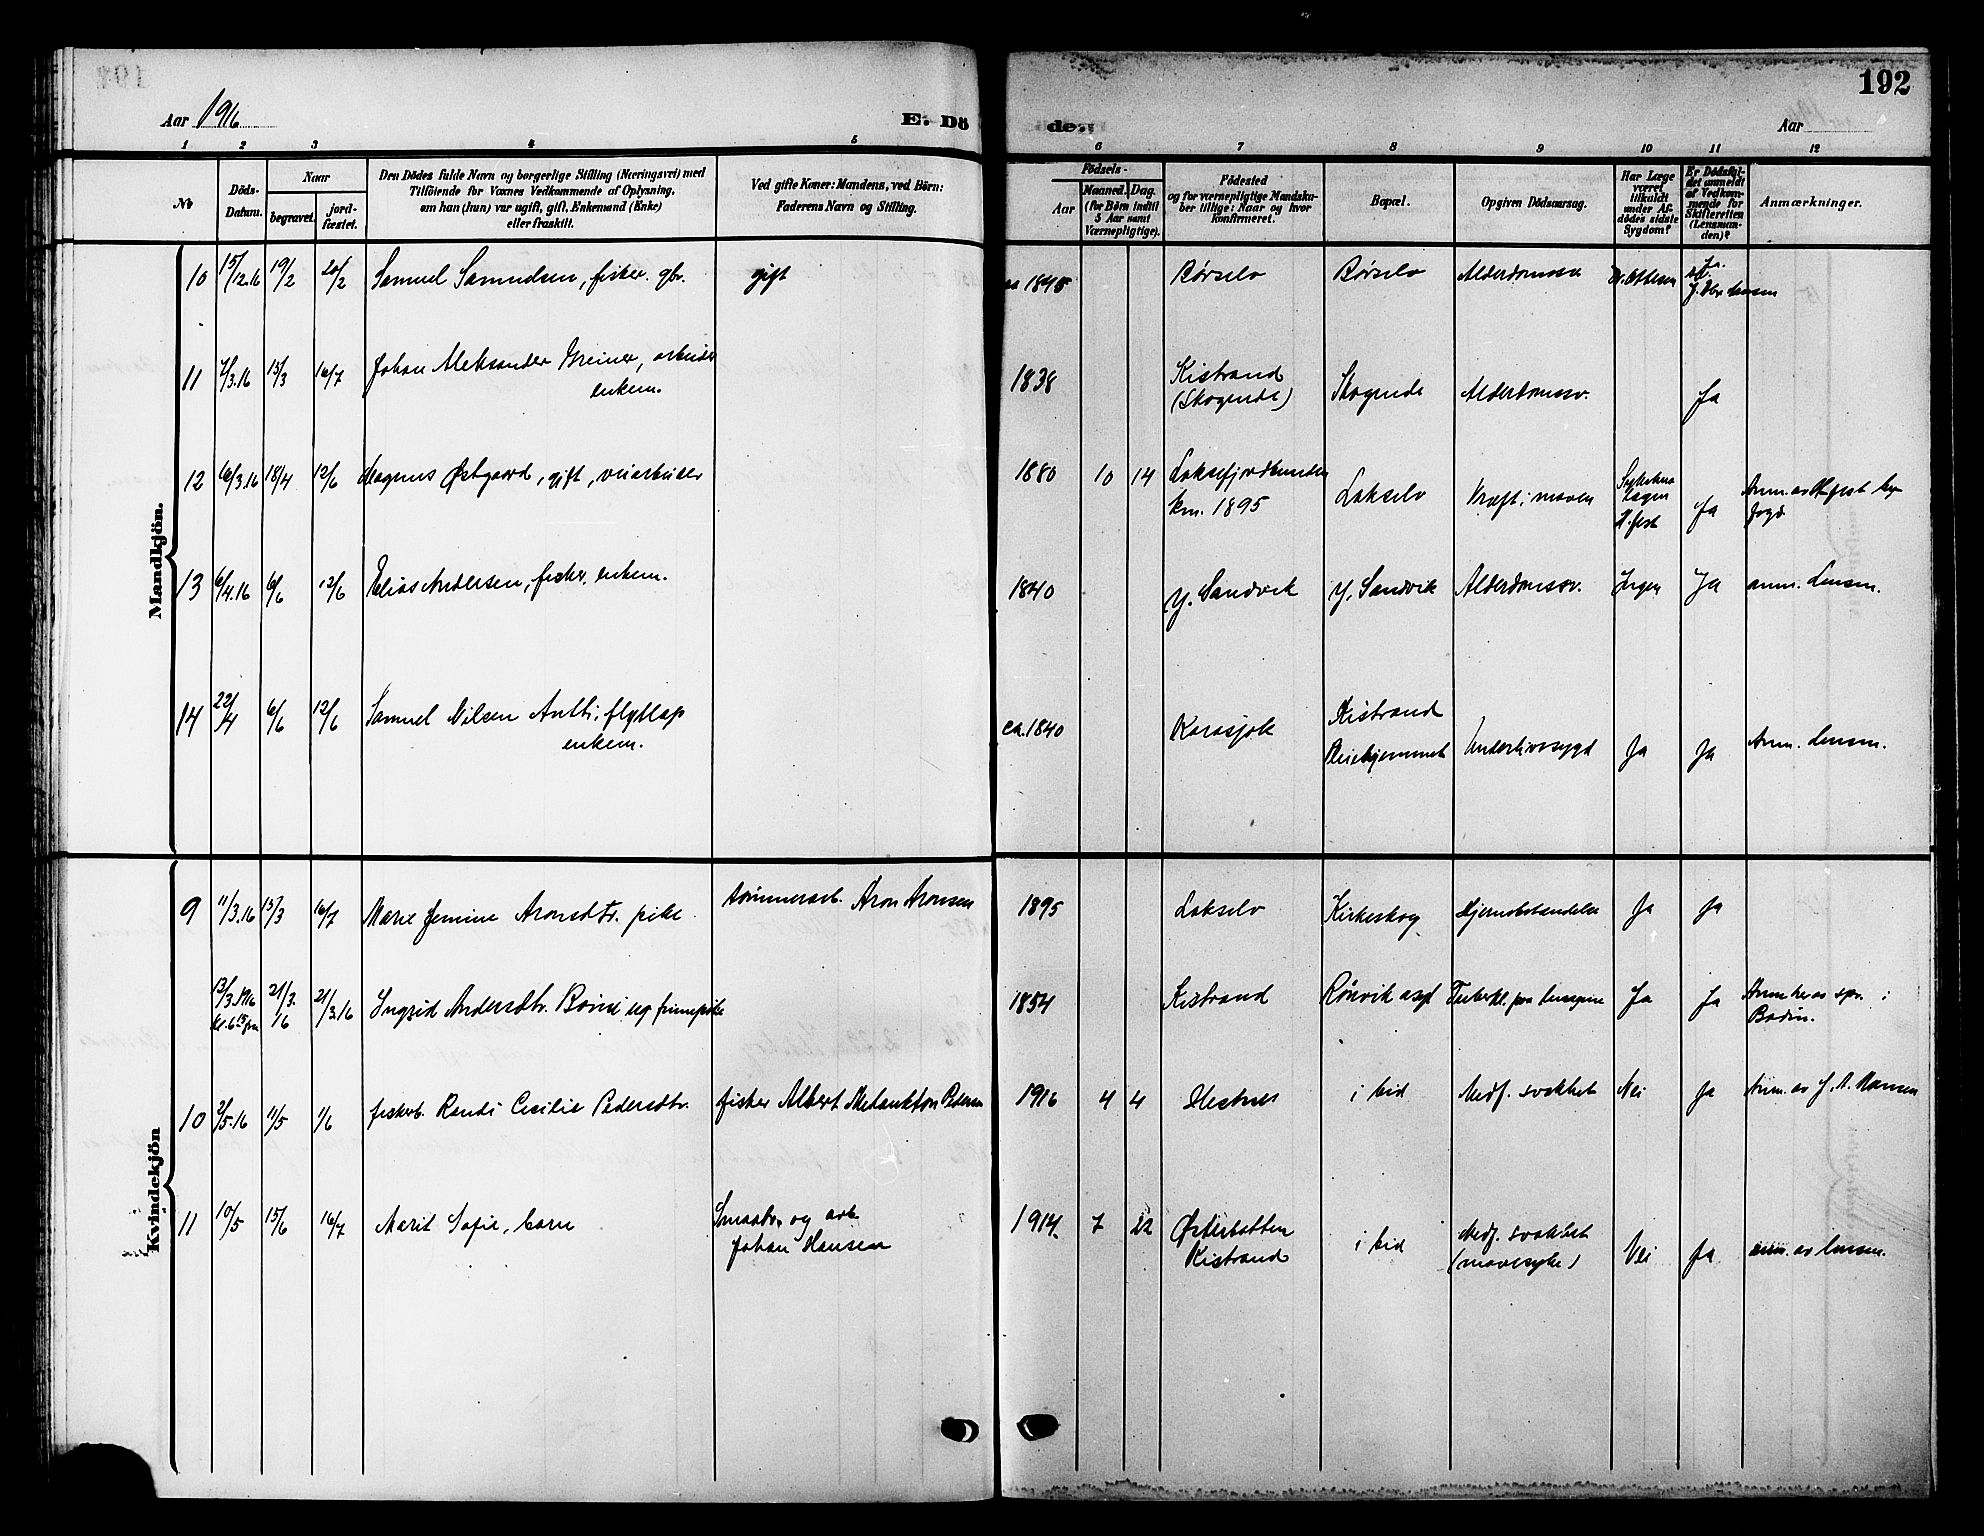 192
Aar 1916
E. Dö
den
Aar
1 2 3 4 5 6 7 8 9 10 11 12
No
Döds-
Datum.
Naar
begravet.
jord-
fæstet.
Den Dödes fulde Navn og borgerlige Stilling (Næringsvei) med
Tilföiende for Voxnes Vedkommende af Oplysning,
om han (hun) var ugift, gift, Enkemand (Enke)
eller fraskilt.
Ved gifte Koner: Mandens, ved Börn:
Faderens Navn og Stilling.
Födsels-
Aar
Maaned. Dag.
(for Börn indtil
5 Aar samt
Værnepligtige).
Födested
og for værnepligtige Mandska-
ber tillige: Naar og hvor
konfirmeret.
Bopæl.
Opgiven Dödsaarsag.
Har Læge
været
tilkaldt
under Af-
dödes sidste
Sygdom?
Er Dödsfal-
det anmeldt
af Vedkom-
mende for
Skifteretten
(Lensman-
den)?
Anmærkninger.
Mandkjön.
10 15/12.16 19/2 20/2 Samuel Samuelsen, fisker. gbr. gift ca 1845 Børselv Børselv Alderdomssv. Ja
11 7/3.16 15/3 16/7 Johan Aleksander Greiner, arbeider
enkem.
1838 Kistrand
(Skogende) Skogende Alderdomssv. Ja
12 16/3.16 18/4 12/6 Magnus Østgaard, gift, veiarbeider 1880 10 14 Laksefjordbunden
km. 1895 Lakselv Kræft i maven Ja
13 6/4.16 6/6 12/6 Elias Andersen, fisker, enkem. 1840 Y. Sandvik Y. Sandvik Alderdomssv. Ingen Ja anm. Lensm.
14 22/4 6/6 12/6 Samuel Nilsen Antti, flytlap
enkem.
ca. 1840 Karasjok Kistrand
Pleiehjemmet Underlivssygd Ja Ja Anm. lensm.
Kvindekjön
9 11/3.16 15/3 16/7 Marie Jemine Aronsdtr. pike tømmerarb. Aron Aronsen 1895 Lakselv Kirkeskog Hjernebetændelse Ja Ja
13/3.1916 21/3.16 21/3.16 Ingrid Andersdtr. ug finnepike 1854 Kistrand Rönvik asyl Tuberkl. paa lungene Ja Ja
Bodin.
10 2/5.16 11/5 1/6 fiskerb. Randi Cecilie Pedersdtr. fisker Albert Melankton Pedersen 1916 4 4 Hestnes i bid Medf. svakhet Nei Ja Anm. av J. A. Hansen
11 10/5 15/6 16/7 Marit Sofie, barn Smaabr. og arb.
Johan Hansen
1914 7 22 Østerbotten
Kistrand i bid Medf. svakhet
(mavesyke) Nei Ja anm. av lensm.